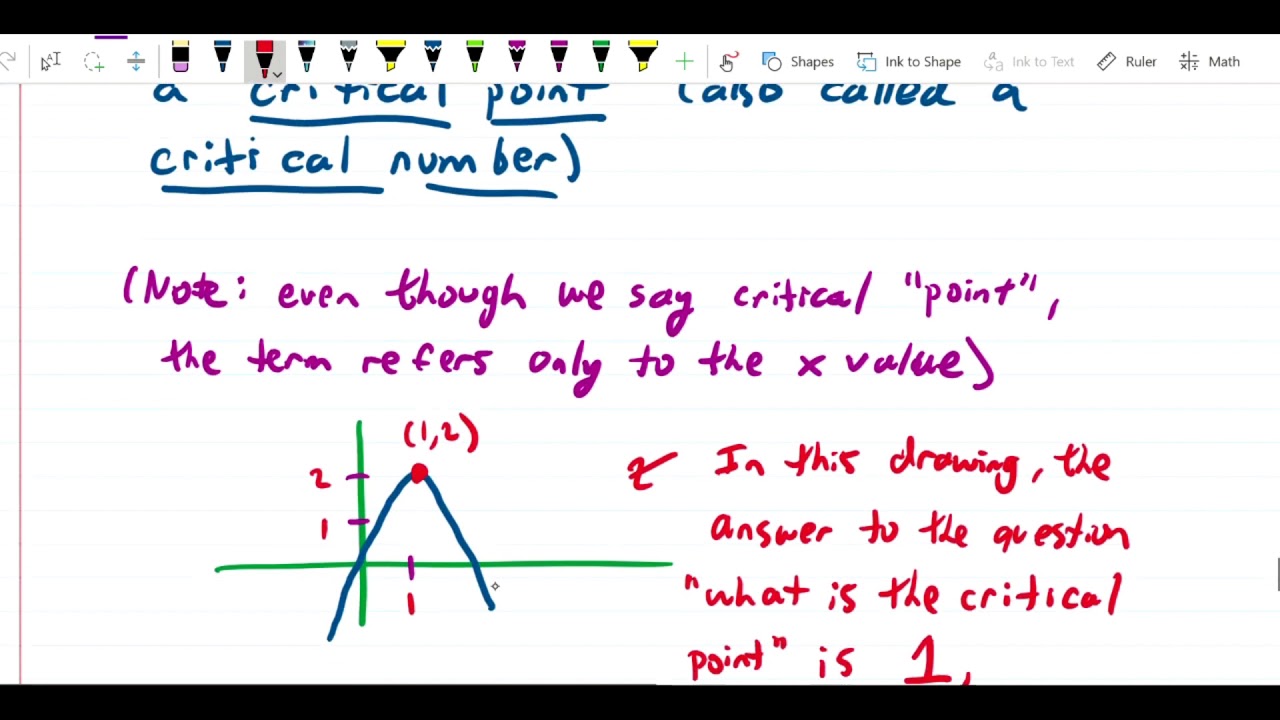 Shapes
Ink to Shape
Ink to Text
Ruler
Math
a critical point (also called a
critical number)
(Note: even though we say critical "point",
the term refers only to the x value)
(1,2)
2
1
1
In this drawing, the
answer to the question
"what is the critical
point" is 1,